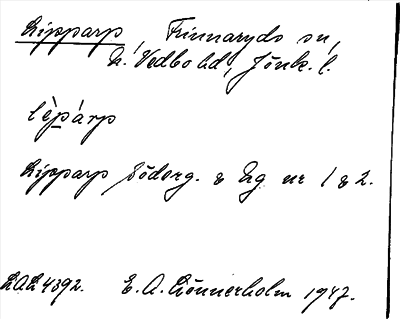 Lipparp, Finnaryds sn,
N. Vedbo hd, Jönk. l.
lèpárp
Lipparp Söderg. & Eg nr 1 & 2.
LAL 4392. E. A. Lönnerholm 1947.